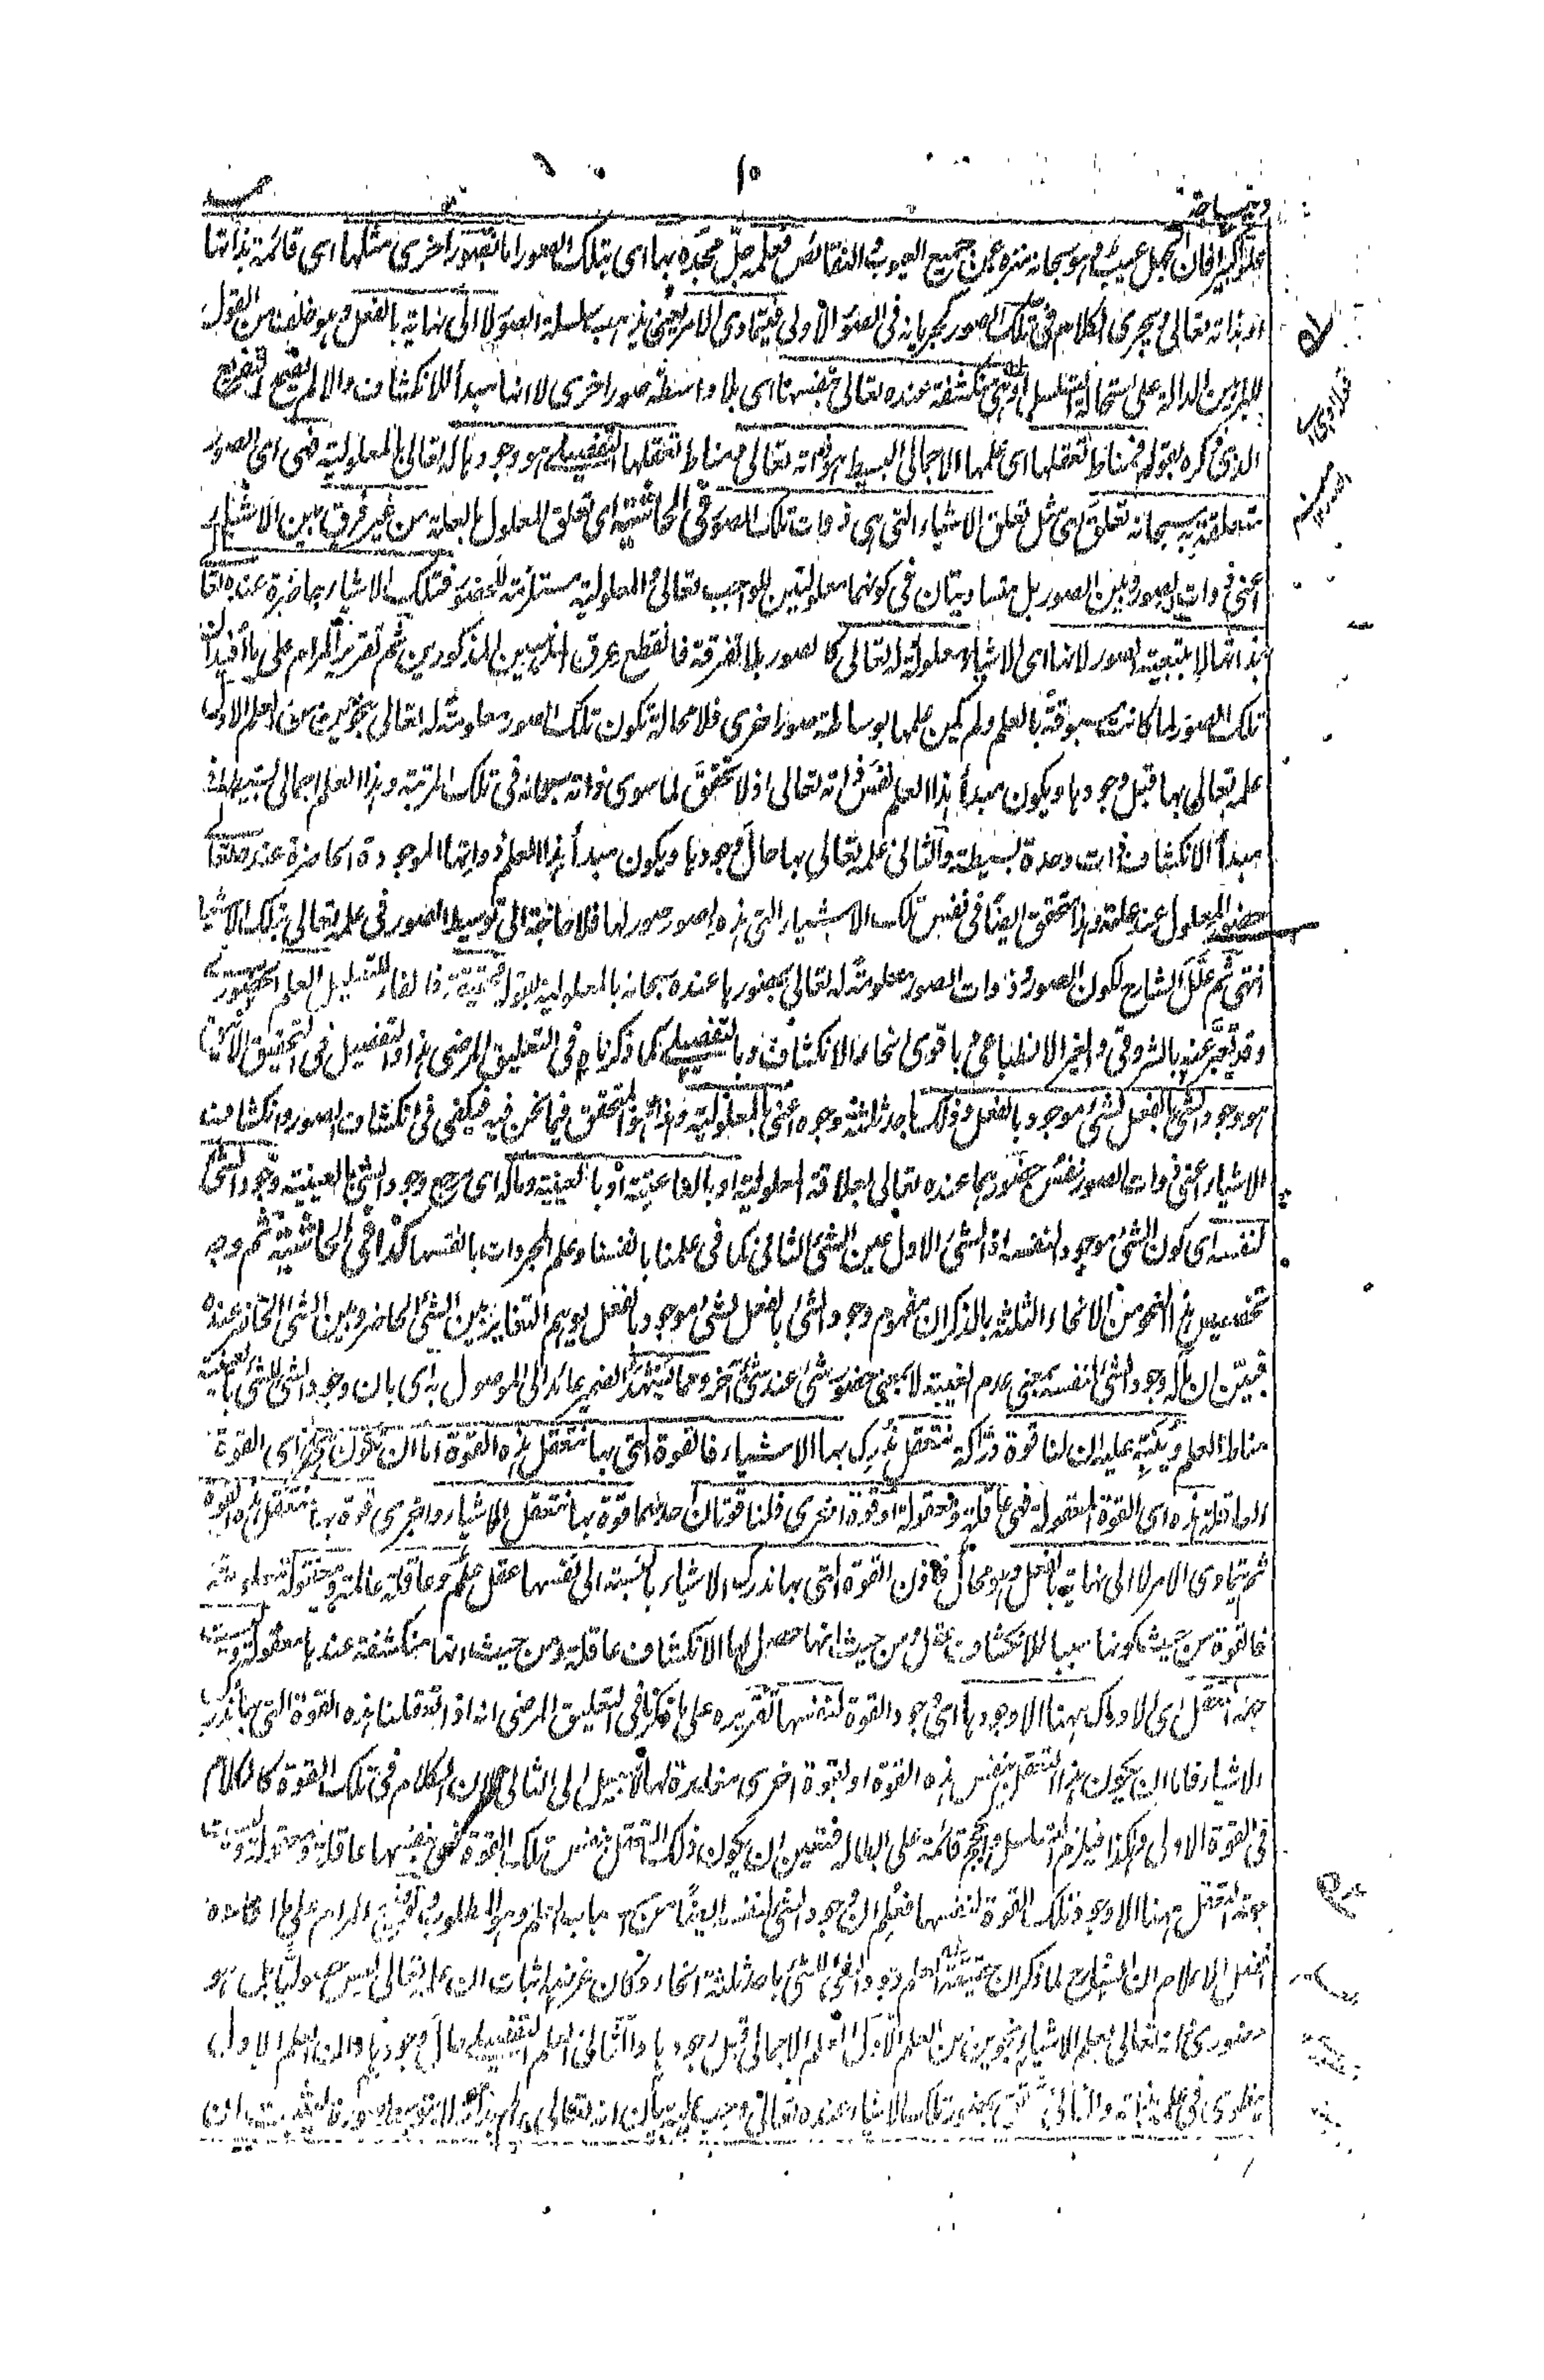 ١٥
علوا كبيرا فان الجهل عيب وهو سبحانه منزه عن جميع العيوب والنقائص فعلمه جل مجده بها اى بتلك الصور اما بصور اخرى مثلها اى قائمة بذاتها
او بذاته تعالى ويجرى الكلام فى تلك الصور كجريانه فى الصور الاولى فيتمادى الامر يعنى يذهب سلسلة الصور لا الى نهاية بالفعل وهو خلف من القول
للبراهين الدالة على استحالة التسلسل او هى منكشفة عنده تعالى بنفسها اى بلا واسطة صور اخرى لا انها مبدأ للانكشاف والا لم يصح التفريع
الذى ذكره بقوله فمناط تعقلها اى علمها الاجمالى البسيط هو ذاته تعالى ومناط تعقلها التفصيلى هو وجودها له تعالى بالمعلولية فهى اى الصور
متعلقة به سبحانه تعلق هى مثل تعلق الاشياء التى هى ذوات تلك الصور فى الحاشية اى تعلق المعلول بالعلة من غير فرق بين الاشياء
اعنى ذوات الصور وبين الصور بل متساويتان فى كونهما معلولتين للواجب تعالى والمعلولية مستلزمة للحضور فتلك الاشياء حاضرة عنده تعالى
بذاتها لا بتبعية الصور لانها اى الاشياء معلولة له تعالى كالصور بلا تفرقة فانقطع عرق المذهبين المذكورين ثم تقرير المرام على ما افيد ان
تلك الصور لما كانت مسبوقة بالعلم ولم يكن علمها بوساطة صور اخرى فلا محالة تكون تلك الصور معلومة له تعالى بنحوين من العلم الاول
علمه تعالى بها قبل وجودها ويكون مبدأ هذا العلم نفس ذاته تعالى اذ لا تحقق لما سوى ذاته سبحانه فى تلك المرتبة وهذا العلم اجمالى بسيط
مبدأ الانكشاف ذات واحدة بسيطة والثانى علمه تعالى بها حال وجودها ويكون مبدأ هذا العلم ذواتها الموجودة الحاضرة عنده
حضور المعلول عند علته وهذا متحقق ايضا فى نفس تلك الاشياء التى هذه الصور صور لها فلا حاجة الى توسيط الصور فى علمه تعالى بتلك الاشياء
انتهى ثم علل الشارح لكون الصور وذوات الصور معلومة له تعالى بحضورها عنده سبحانه بالمعلولية بقوله فحقيقة فالفاء للتعليل العلم الحضورى
وقد يعبر عنه بالشروقى والغير الانطباعى وباقوى انحاء الانكشاف وبالتفصيلى كما ذكرناه فى التعليق المرضى هذا والتفصيل فى التحقيق الانيق
هو وجود الشئ بالفعل لشئ موجود بالفعل وذلك باحد ثلثة وجوه اعنى بالمعلولية وهذا هو المتحقق فيما نحن فيه فيكفى فى انكشاف الصور وانكشاف
الاشياء اعنى ذوات الصور نفس حضورها عنده تعالى بعلاقة المعلولية او بالناعتية او بالعينية ومآله اى مرجع وجود الشئ بالعينية وجود الشئ
لنفسه اى كون الشئ موجودا لنفسه اذ الشئ الاول عين الشئ الثانى كما فى علمنا بانفسنا وعلم المجردات بانفسها كذا فى الحاشية ثم وجه
تخصيص هذا النحو من الانحاء الثلثة بالذكر ان مفهوم وجود الشئ بالفعل لشئ موجود بالفعل يوهم التغاير بين الشئ الحاضر وبين الشئ الحاضر عنده
فبين ان مآله وجود الشئ لنفسه بمعنى عدم الغيبة لا بمعنى حضور شئ عند شئ آخر ومما ينبه الضمير عائد الى الموصول به اى بان وجود الشئ للشئ بالعينية
مناط العلم وينبه عليه ان لنا قوة دراكة نتعقل ندرك بها الاشياء فالقوة التى بها نتعقل هذه القوة اما ان تكون هى اى القوة
العاقلة هذه اى القوة المعقولة فهى عاقلة ومعقولة او قوة اخرى فلنا قوتان احدهما قوة بها نتعقل الاشياء واخرى قوة بها نتعقل هذه القوة
ثم يتمادى الامر لا الى نهاية بالفعل وهو محال فاذن القوة التى بها ندرك الاشياء بالنسبة الى نفسها عقل علم وعاقلة عالمة ومعقولة معلومة
فالقوة من حيث كونها مبدأ للانكشاف عقل ومن حيث انها حصل لها الانكشاف عاقلة ومن حيث انها منكشفة عندها معقولة وليست
جهة التعقل اى الادراك ههنا الا وجودها اى وجود القوة لنفسها تقريره على ما ذكرنا فى التعليق المرضى انه اذا تعقلنا هذه القوة التى بها ندرك
الاشياء فاما ان يكون هذا التعقل بنفس هذه القوة او بقوة اخرى مغايرة لها لا سبيل الى الثانى لان الكلام فى تلك القوة كالكلام
فى القوة الاولى وهكذا فيلزم التسلسل والحجج قائمة على ابطاله فتعين ان يكون ذلك التعقل بنفس تلك القوة فهى بنفسها عاقلة ومعقولة وليست
جهة التعقل ههنا الا وجود تلك القوة لنفسها فعلم ان وجود الشئ لنفسه ايضا من مبادى العلم وهو المطلوب وتقرير المرام على ما افاده
افضل الاعلام ان الشارح لما ذكر ان حقيقة العلم وجود الشئ للشئ باحد ثلثة انحاء وكان غرضه اثبات ان علمه تعالى ليس حصوليا بل هو
حضورى وانه تعالى يعلم الاشياء بنحوين من العلم الاول العلم الاجمالى قبل وجودها والثانى العلم التفصيلى حال وجودها وان العلم الاول
منطوى فى علمه بذاته والثانى بحضور تلك الاشياء عنده تعالى وجب عليه بيان انه تعالى